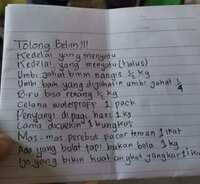 Tolong Belian!!!
Kedelai yang menyatu
Kedelai yang menyatu (halus)
Umbi jahat bikin nangis ½ kg
Umbi baik yang dijahatin umbi jahat ¼
Biru bisa renang ½ kg
Celana waterproof 1 pack
Penyanyi di pagi hari 1 kg
Lama dicuekin 1 bungkus
Mas-mas perebus pacar teman 1 ikat
Ada yang bulat tapi bukan bola 1 kg
Ijo yang bikin kuat angkat